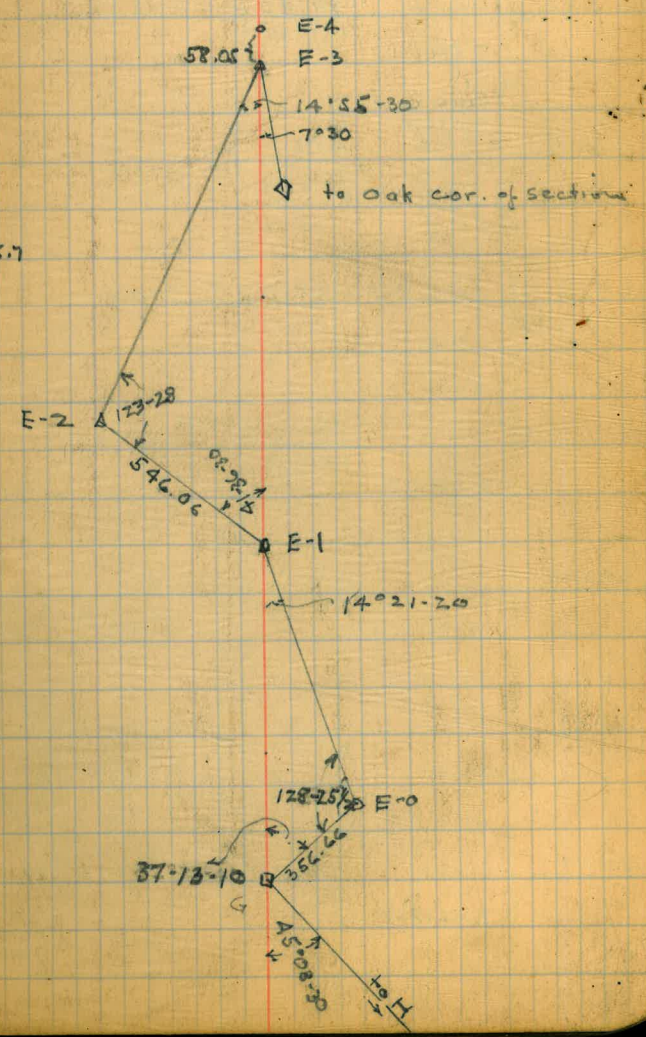 E-4
58.05
E-3
14°55-30
7°30
to Oak cor. of sections
E-2
123-28
546.06
41-36-30
E-1
14°21-20
128-25
E-0
356.66
37-13-10
G
45°08-30
to H